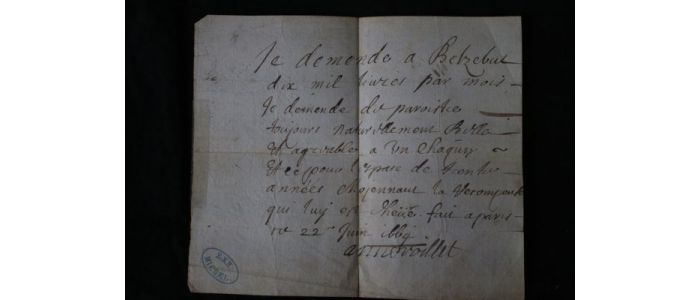 Je demende a Belzebut
dix mil livres par mois
Je demende du paroistre
toujours naturellement Belle
Et agreable a un Chaqun
Et ce pour l'espase de trente
années moyennant la recompense
qui luy est fait a paris
ce 22 Juin